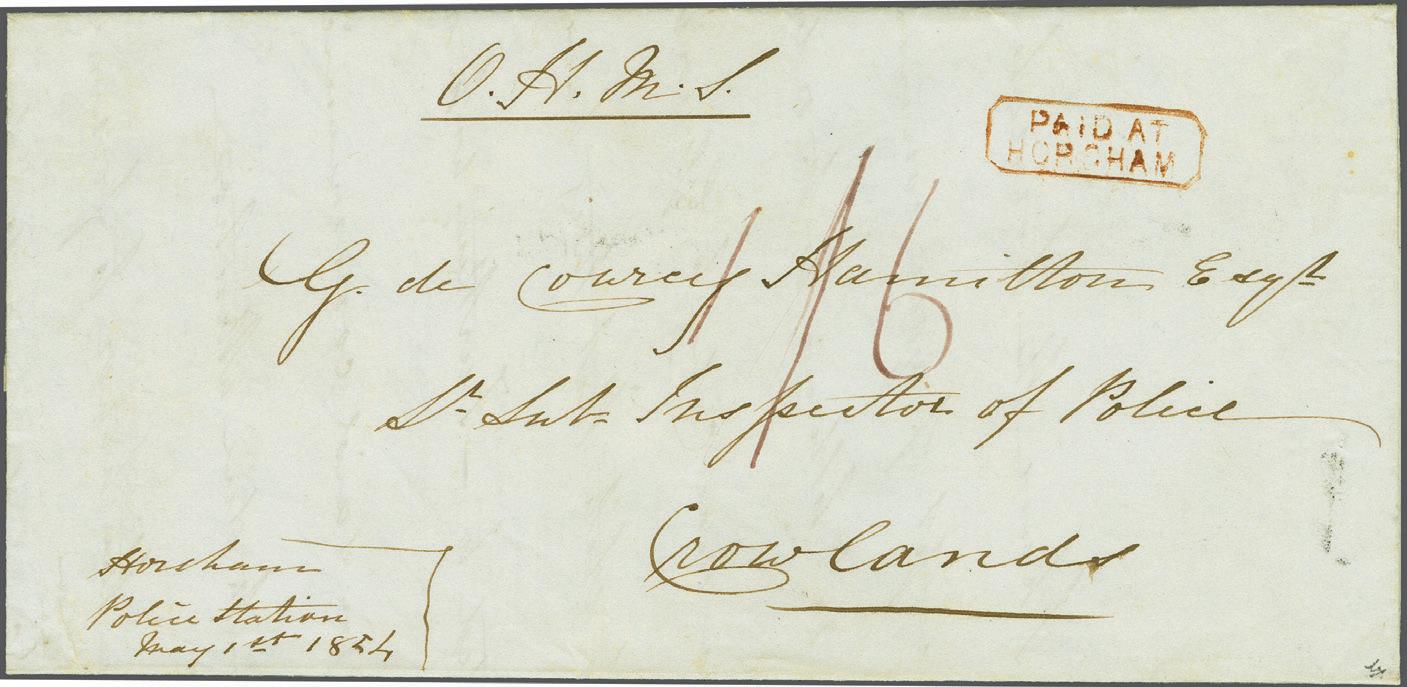 O. H. M. S.
PAID AT
HORSHAM
1/6
G. de Courcy Hamilton Esqre
Sr Sub Inspector of Police
Crowlands
Horsham
Police Station
May 1st 1854